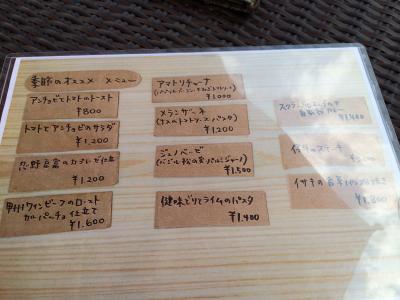 季節のオススメ メニュー
アンチョビとトマトのトースト
¥800
トマトとアンチョビのサラダ
¥1,200
忍野豆腐のカプレーゼ仕立
¥1,200
甲州ワインビーフのロースト
カルパッチョ 仕立て
¥1,600
アマトリチャーナ
¥1,000
メランザーネ
(ナスのトマトソースパスタ)
¥1,200
ジェノベーゼ
(バジル 松の実 パルミジャーノ)
¥1,500
健味どりとライムのパスタ
¥1,400
ステーキ
イサキの香草
¥1,800